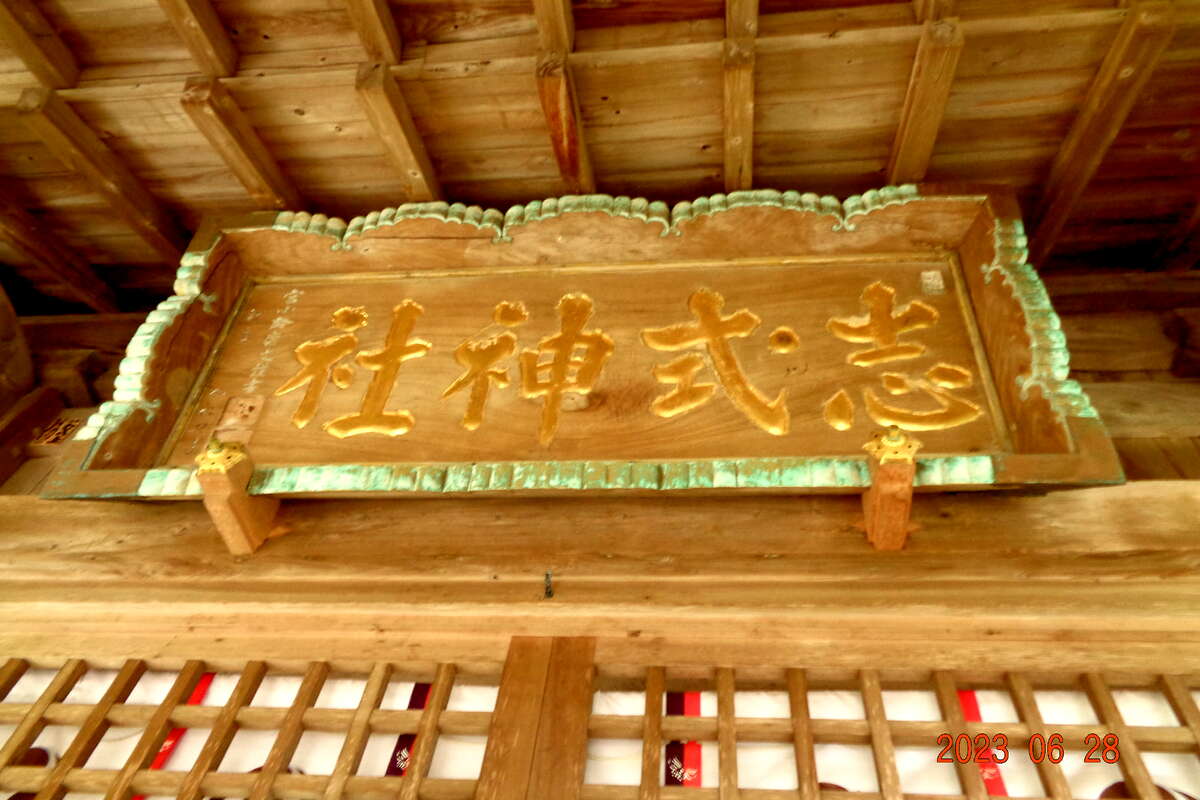 志式神社
2023 06 28